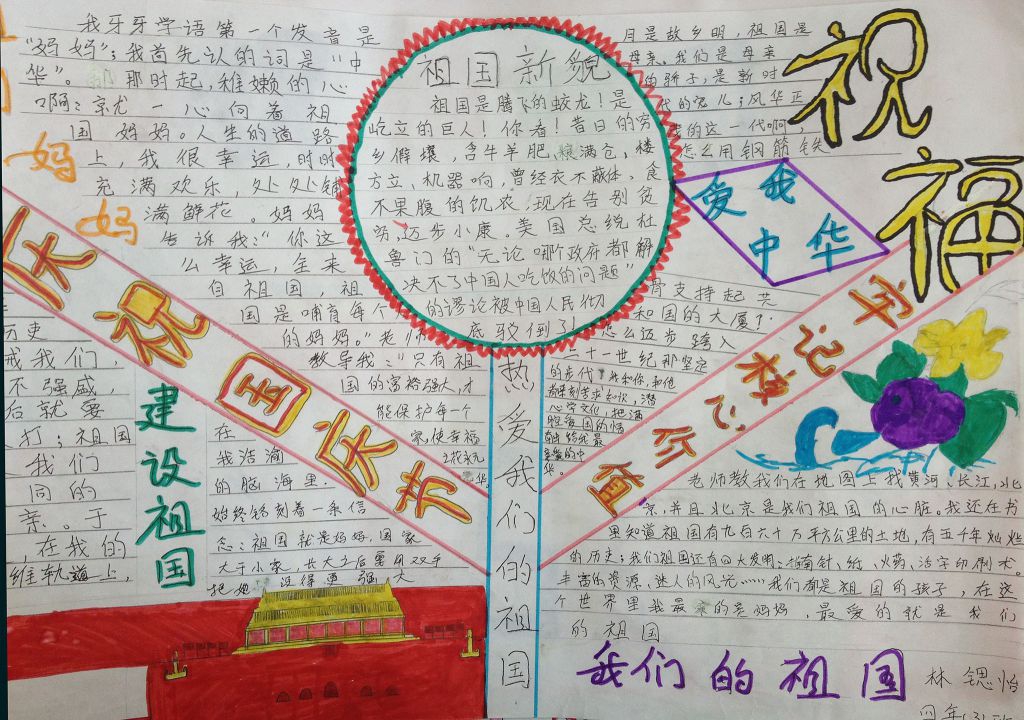 我牙牙学语第一个发音是
“妈妈”；我首先认的词是“中
华”。那时起，稚嫩的心
啊：就一心向着祖
国妈妈。人生的道路
上，我很幸运，时时
充满欢乐，处处铺
满鲜花。妈妈
告诉我：“你这
么幸运，全来
自祖国，祖
国是哺育每个
的妈妈。”老师
教导我：“只有祖
国的富裕强大，才
能保护每一个
家，使幸福
之花永
在
我浩瀚
的脑海里，
始终铭刻着一条信
念：祖国就是妈妈，国家
大于小家，长大之后要用双手
把她 设得更强大
妈
妈
祖国新貌
祖国是腾飞的蛟龙！是
屹立的巨人！你看！昔日的穷
乡僻壤，含牛羊肥，粮满仓，楼
方立，机器响，曾经衣不蔽体、食
不果腹的饥农，现在告别贫
穷，迈步小康。美国总统杜
鲁门的“无论哪个政府都解
决不了中国人吃饭的问题”
的谬论被中国人民彻
底驳倒了！
月是故乡明，祖国是
母亲。我们是母亲
的骄子，是新时
代的宠儿；风华正
的这一代啊，
怎么用钢筋铁
骨支持起共
和国的大厦？
怎么迈步跨入
二十一世纪那坚定
的步代
祝
福
爱我
中华
庆祝国庆节
牢记核心价值
历史
我们，
不强盛，
后就要
打；祖国
我们
同的
亲。于
，在我的
维轨道上，
建设祖国
热爱我们的祖国
老师教我们在地图上找黄河、长江，北
京，并且北京是我们祖国的心脏。我还在书
里知道祖国有九百六十万平方公里的土地，有五千年灿烂
的历史；我们祖国还有四大发明：指南针、纸、火药、活字印刷术。
丰富的资源，迷人的风光……我们都是祖国的孩子，在这
个世界里我最亲的是妈妈，最爱的就是我们
的祖国
我们的祖国
林锶怡